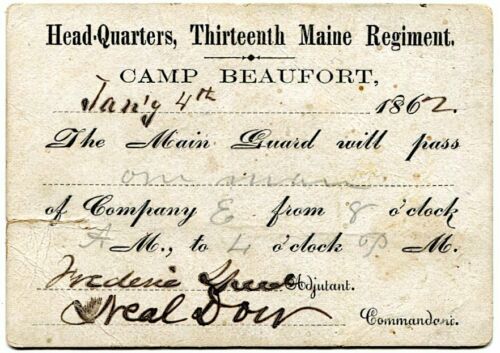 Head-Quarters, Thirteenth Maine Regiment.
CAMP BEAUFORT,
Jan'y 4th 1862.
The Main Guard will pass
one man
of Company E from 8 o'clock
A M., to 4 o'clock P M.
Frederic Speed Adjutant.
Neal Dow Commandant.